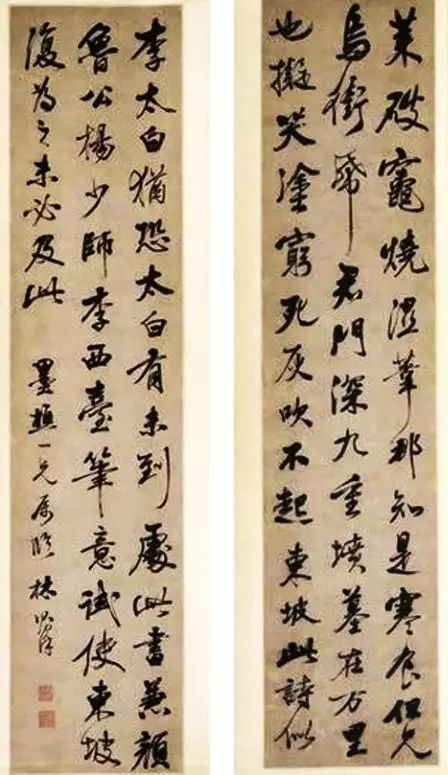 菜破竈燒濕葦那知是寒食但見
烏銜帋君門深九重墳墓在万里
也擬哭塗窮死灰吹不起東坡此詩似
李太白猶恐太白有未到處此書兼顏
魯公楊少師李西臺筆意試使東坡
復為之未必及此 墨 一兄屬臨 林則徐